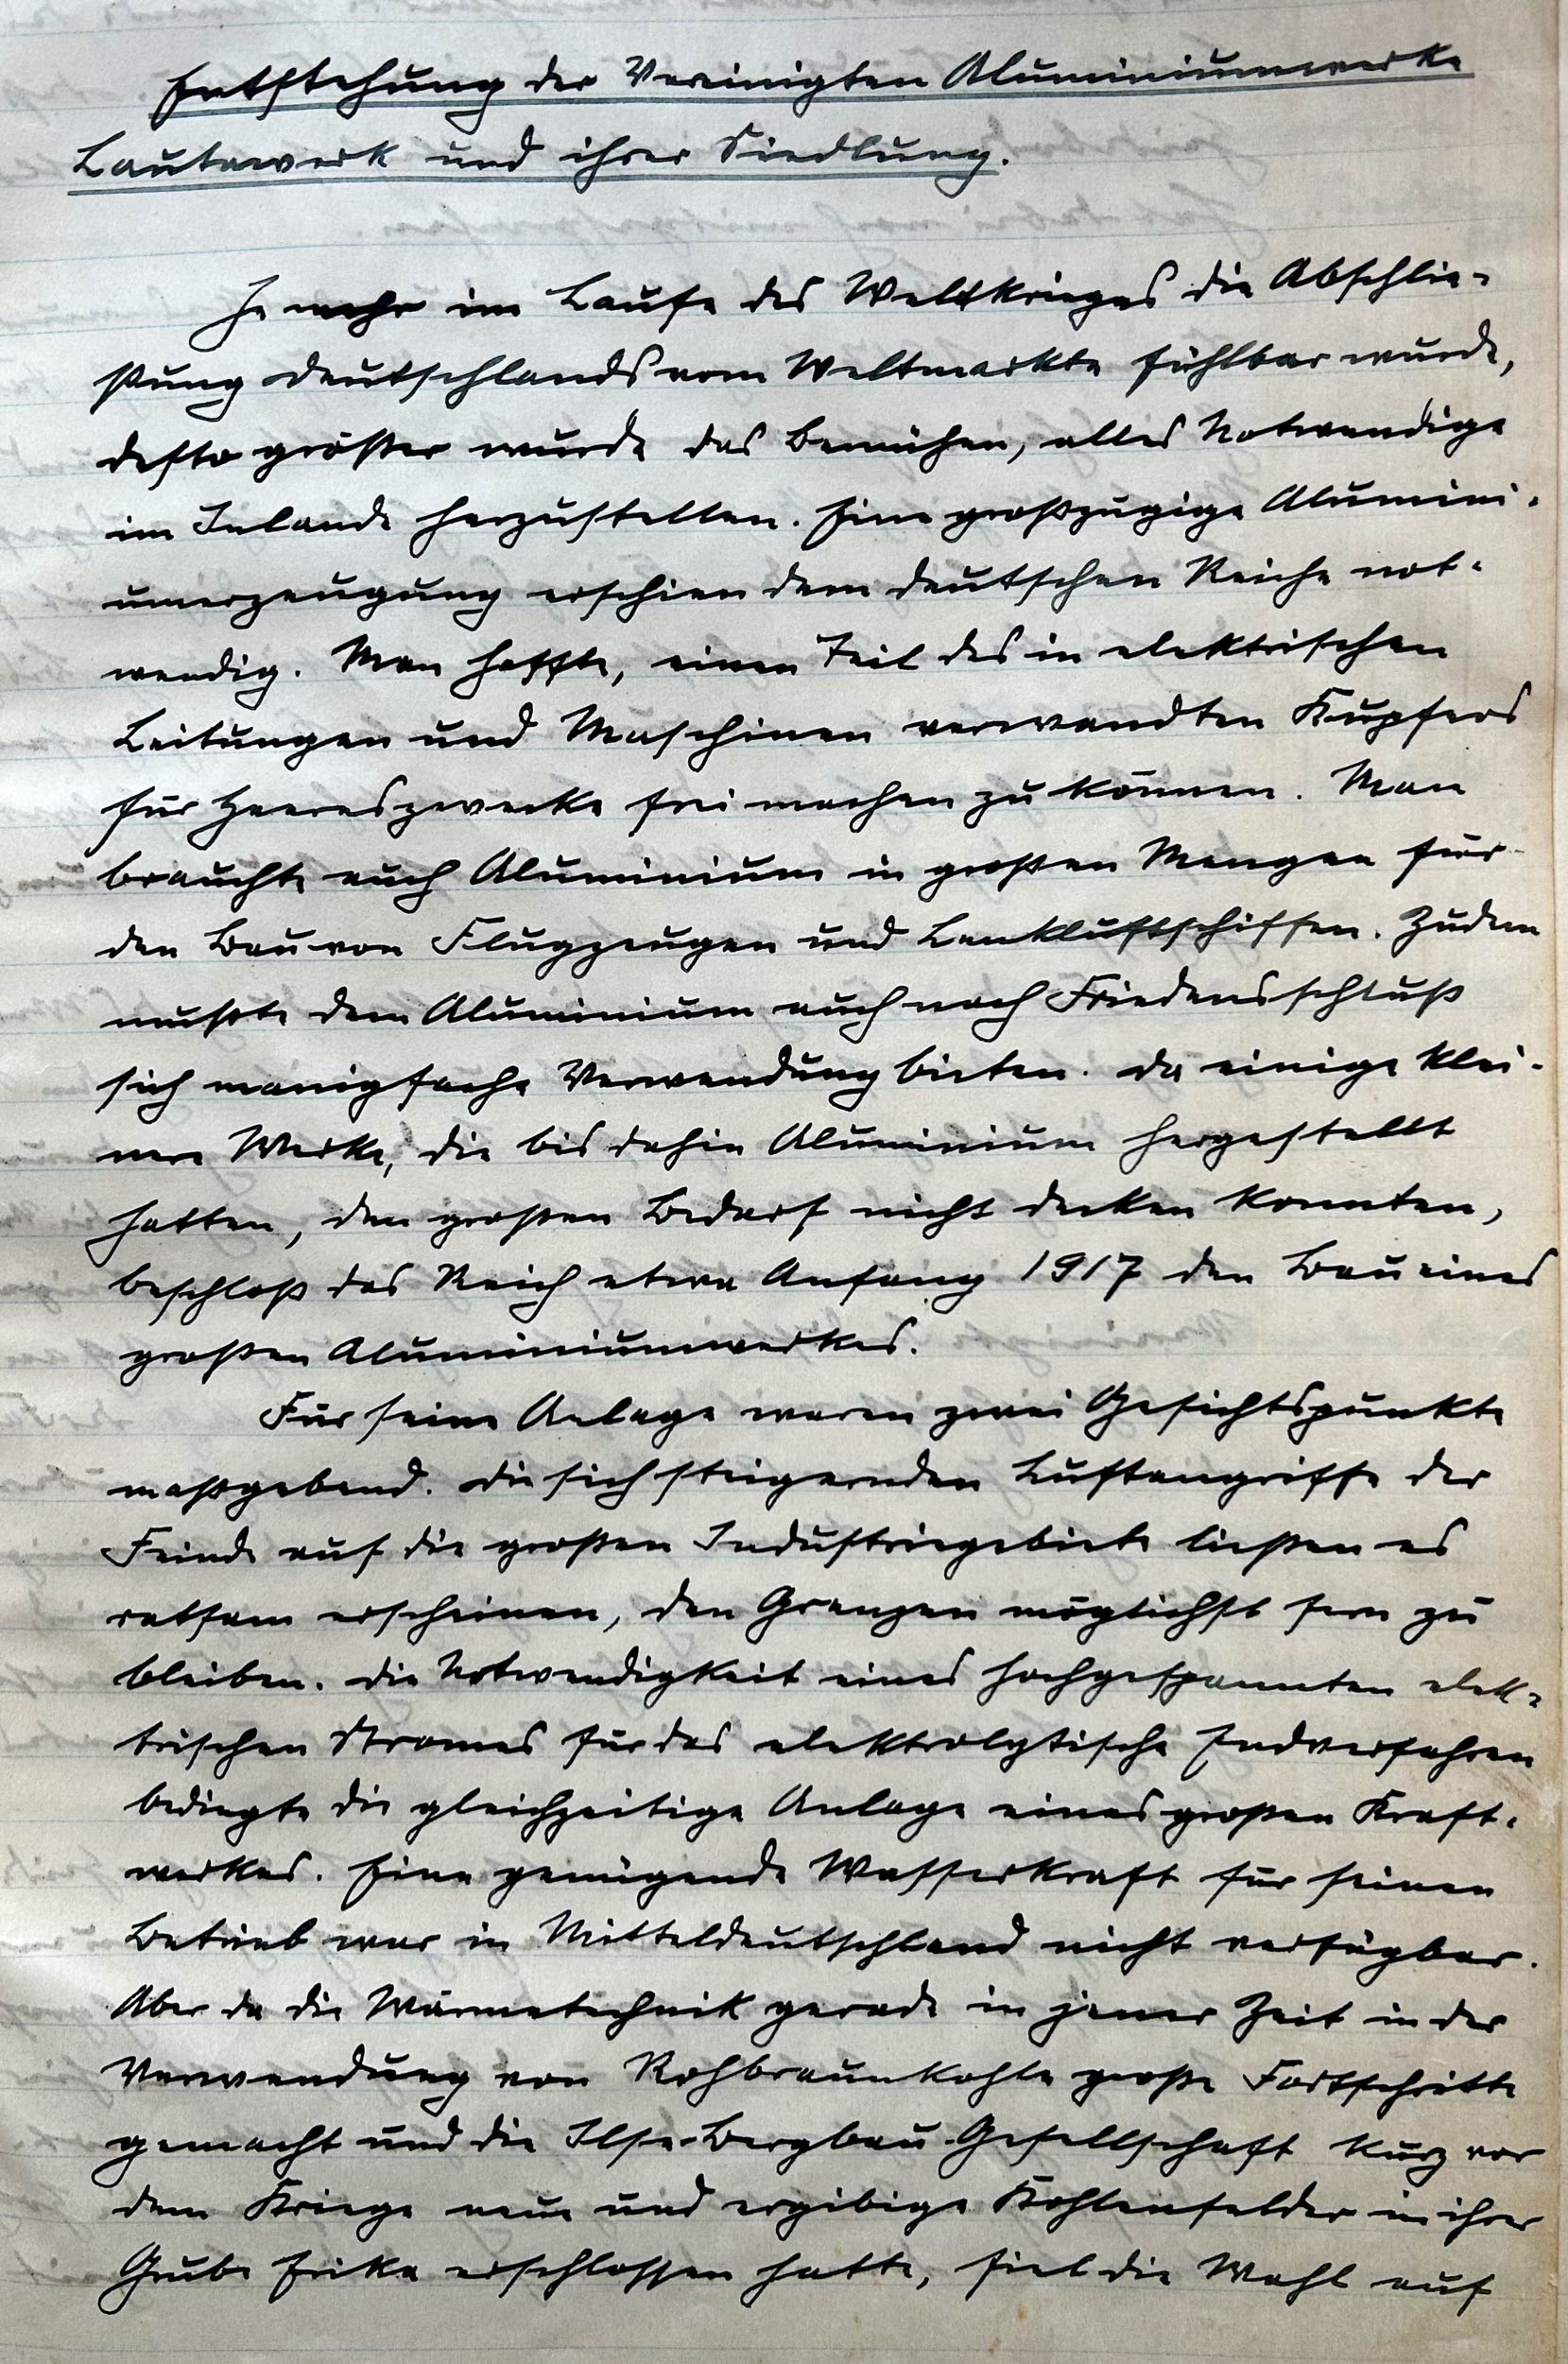 Entstehung der Vereinigten Aluminiumwerke
Lautawerk und ihrer Siedlung.
Je mehr im Laufe des Weltkrieges die Abschlie-
ßung Deutschlands vom Weltmarkte fühlbar wurde,
desto größer wurde das Bemühen, alles Notwendige
im Inlande herzustellen. Eine großzügige Alumini-
umerzeugung erschien dem Deutschen Reiche not-
wendig. Man hoffte, einen Teil des in elektrischen
Leitungen und Maschinen verwandten Kupfers
für Heereszwecke frei machen zu können. Man
brauchte auch Aluminium in großen Mengen für
den Bau von Flugzeugen und Lenkluftschiffen. Zudem
mußte dem Aluminium auch nach Friedensschluß
sich manigfache Verwendung bieten. Da einige klei-
nere Werke, die bis dahin Aluminium hergestellt
hatten, den großen Bedarf nicht decken konnten,
beschloß das Reich etwa Anfang 1917 den Bau eines
großen Aluminiumwerkes.
Für seine Anlage waren zwei Gesichtspunkte
maßgebend. Die sich steigernden Luftangriffe der
Feinde auf die großen Industriegebiete ließen es
ratsam erscheinen, den Grenzen möglichst fern zu
bleiben. Die Notwendigkeit eines hochgespannten elek-
trischen Stromes für das elektrolytische Endverfahren
bedingte die gleichzeitige Anlage eines großen Kraft-
werkes. Eine genügende Wasserkraft für seinen
Betrieb war in Mitteldeutschland nicht verfügbar.
Aber da die Wärmetechnik gerade in jener Zeit in der
Verwendung von Rohbraunkohle große Fortschritte
gemacht und die Ilse-Bergbau-Gesellschaft kurz vor
dem Kriege neue und ergibige Kohlenfelder in ihrer
Grube Erika erschlossen hatte, fiel die Wahl auf